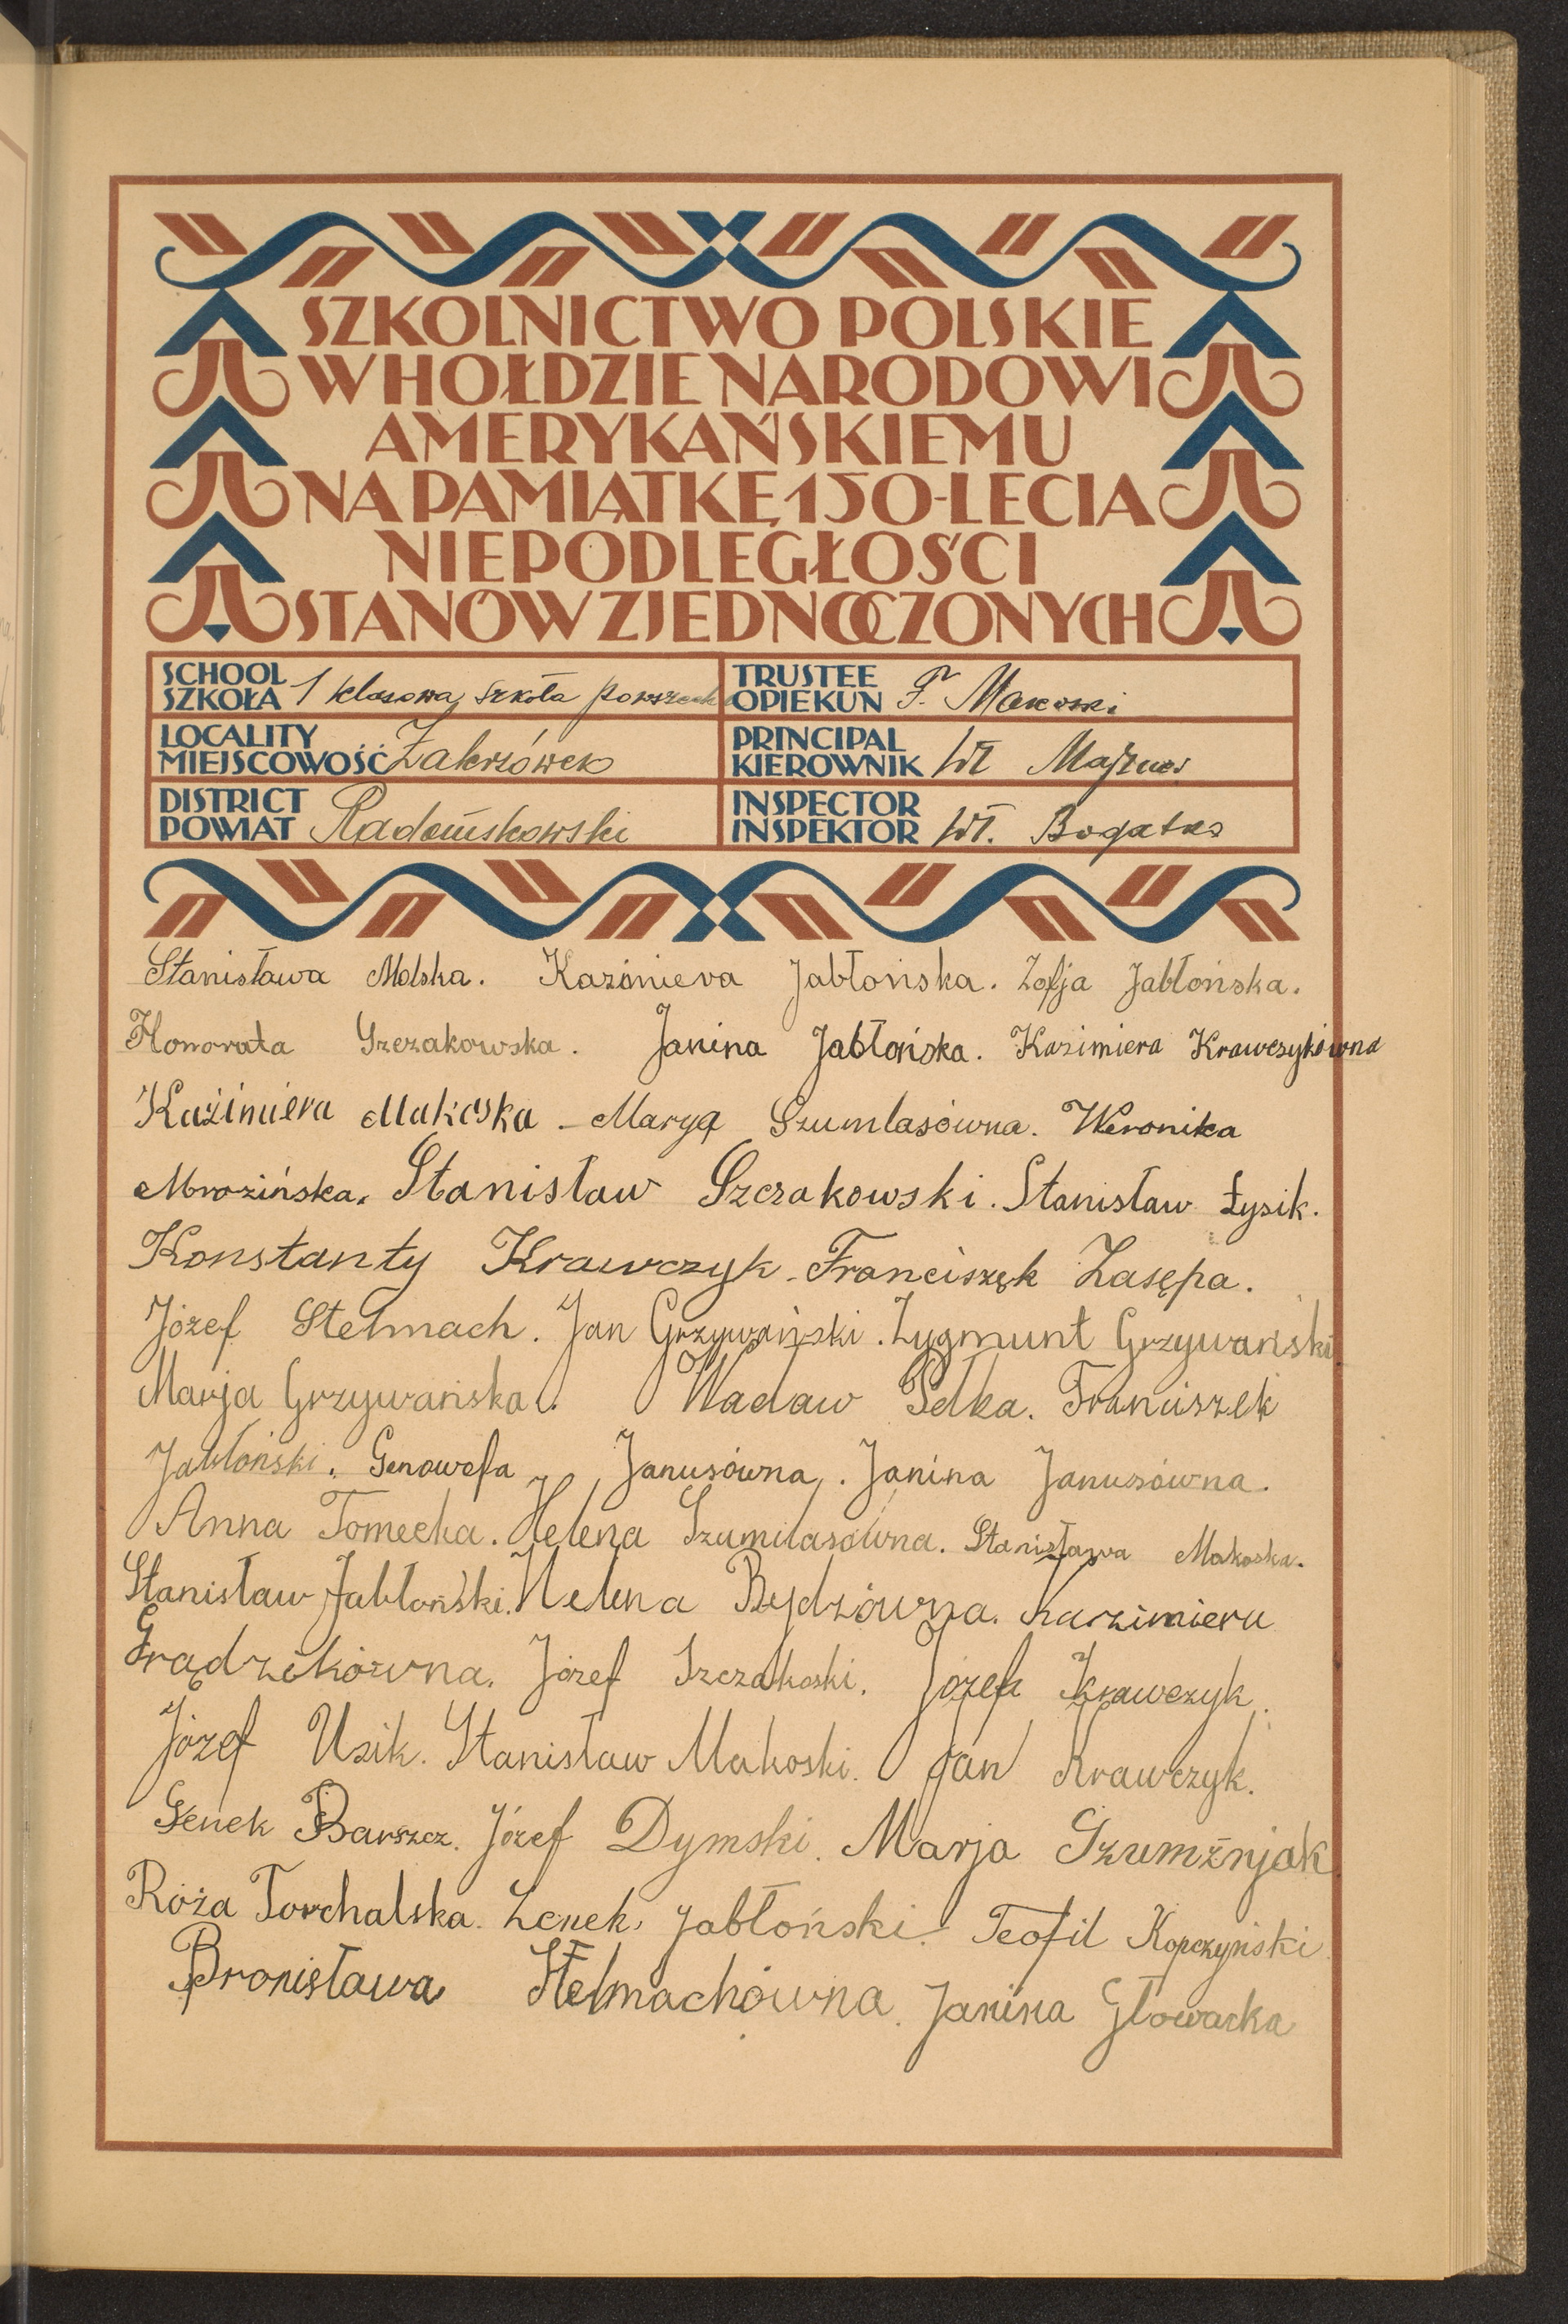 SZKOLNICTWO POLSKIE
W HOŁDZIE NARODOWI
AMERYKAŃSKIEMU
NA PAMIĄTKĘ 150-LECIA
NIEPODLEGŁOŚCI
STANÓW ZJEDNOCZONYCH
SCHOOL
SZKOŁA 1 klasowa szkoła powszech
TRUSTEE
OPIEKUN F. Makowski
LOCALITY
MIEJSCOWOŚĆ Zakrzówek
PRINCIPAL
KIEROWNIK Wł
DISTRICT
POWIAT Radomskowski
INSPECTOR
INSPEKTOR Wł. Bogatko
Stanisława Molska. Kazimiera Jabłońska. Zofja Jabłońska.
Honorata Szczakowska. Janina Jabłońska. Kazimiera Krawczykówna
Kaźimiera Makoska - Marya Szumlasówna. Weronika
Mrozińska. Stanisław Szczakowski. Stanisław Łysik.
Konstanty Krawczyk. Franciszek Zasępa.
Józef Stelmach. Jan Grzywański. Zygmunt Grzywański
Marja Grzywańska. Wacław Pełka. Franciszek
Jabłoński. Genowefa Janusówna. Janina Janusówna.
Anna Tomecka. Helena Szumilasówna. Stanisława Makoska.
Stanisław Jabłoński. Helena Bydzówna. Kazimiera
Grądzikówna. Józef Szczakoski. Józef Krawczyk.
Józef Usik. Stanisław Makoski. Jan Krawczyk.
Genek Barszcz. Józef Dymski. Marja Szumźnjak
Róża Torchalska. Zenek Jabłoński. Teofil Kopczyński
Bronisława Stelmachówna. Janina Głowacka